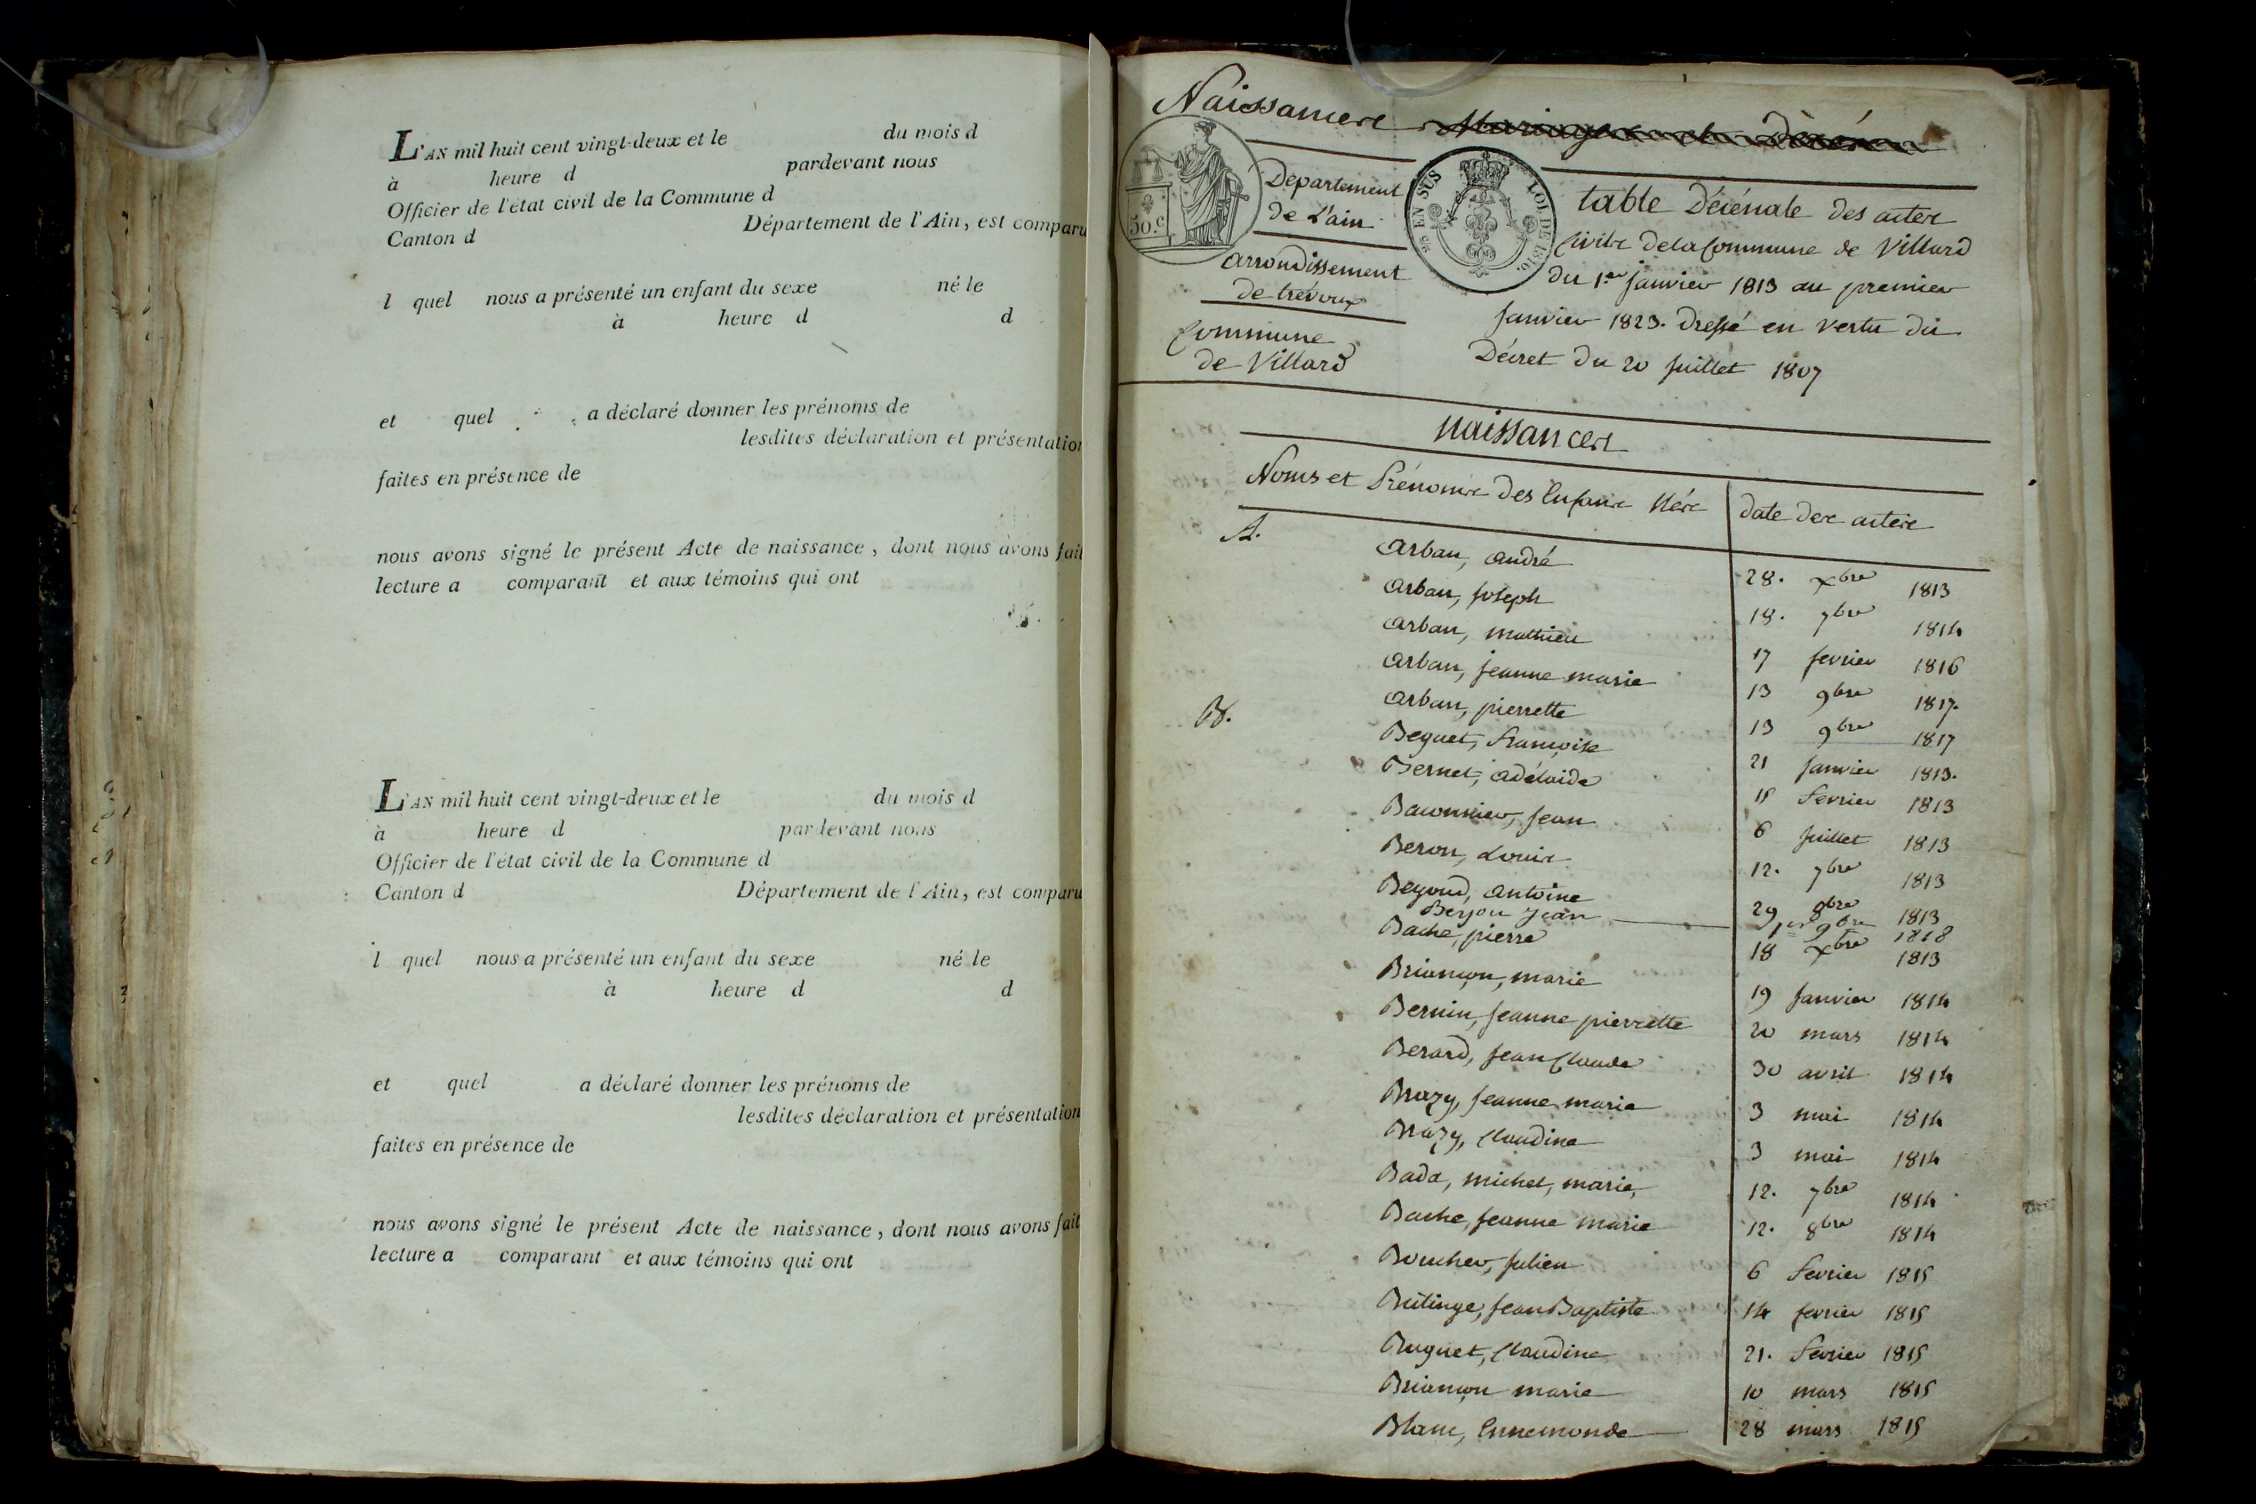 L'AN mil huit cent vingt-deux et le du mois d
à heure d pardevant nous
Officier de l'état civil de la Commune d
Canton d Département de l'Ain, est comparu
l quel nous a présenté un enfant du sexe né le
à heure d d
et quel a déclaré donner les prénoms de
lesdites déclaration et présentation
faites en présence de
nous avons signé le présent Acte de naissance, dont nous avons fait
lecture a comparant et aux témoins qui ont
L'AN mil huit cent vingt-deux et le du mois d
à heure d pardevant nous
Officier de l'état civil de la Commune d
Canton d Département de l'Ain, est comparu
l quel nous a présenté un enfant du sexe né le
à heure d d
et quel a déclaré donner les prénoms de
lesdites déclaration et présentation
faites en présence de
nous avons signé le présent Acte de naissance, dont nous avons fait
lecture a comparant et aux témoins qui ont
Naissances Mariages et Décès
50.c
EN SUS LOI DE 1816.
Département
de L'ain
arrondissement
de trévoux
Commune
de Villard
table Décénale des actes
Civils de la Commune de Villard
du 1er janvier 1813 au premier
Janvier 1823. Dressé en vertu du
Décret du 20 Juillet 1807
Naissances
Noms et Prénoms des Enfans Nés date des actes
A. arban, andré 28. xbre 1813
arban, joseph 18. 7bre 1814
arban, mathieu 17 fevrier 1816
arban, jeanne marie 13 9bre 1817.
arban, pierrette 13 9bre 1817
B. Beguet, françoise 21 Janvier 1813.
Bernet, adélaide 15 fevrier 1813
Baconnier, jean 6 Juillet 1813
Beron, Louis 12. 7bre 1813
Beyoud, antoine 29 8bre 1813
Beyou Jean 1er 9bre 1818
Bache, pierre 18 xbre 1813
Briançon, marie 19 Janvier 1814
Bernin, jeanne pierrette 20 mars 1814
Berard, jean Claude 30 avril 1814
Brazy, jeanne marie 3 mai 1814
Brazy, Claudine 3 mai 1814
Bada, michel, marie, 12. 7bre 1814
Bache, jeanne marie 12. 8bre 1814
Boucher, julien 6 fevrier 1815
Jean Baptiste 14 fevrier 1815
Buguet, Claudine 21. fevrier 1815
Briançon marie 10 mars 1815
Blanc, Ennemonde 28 mars 1815